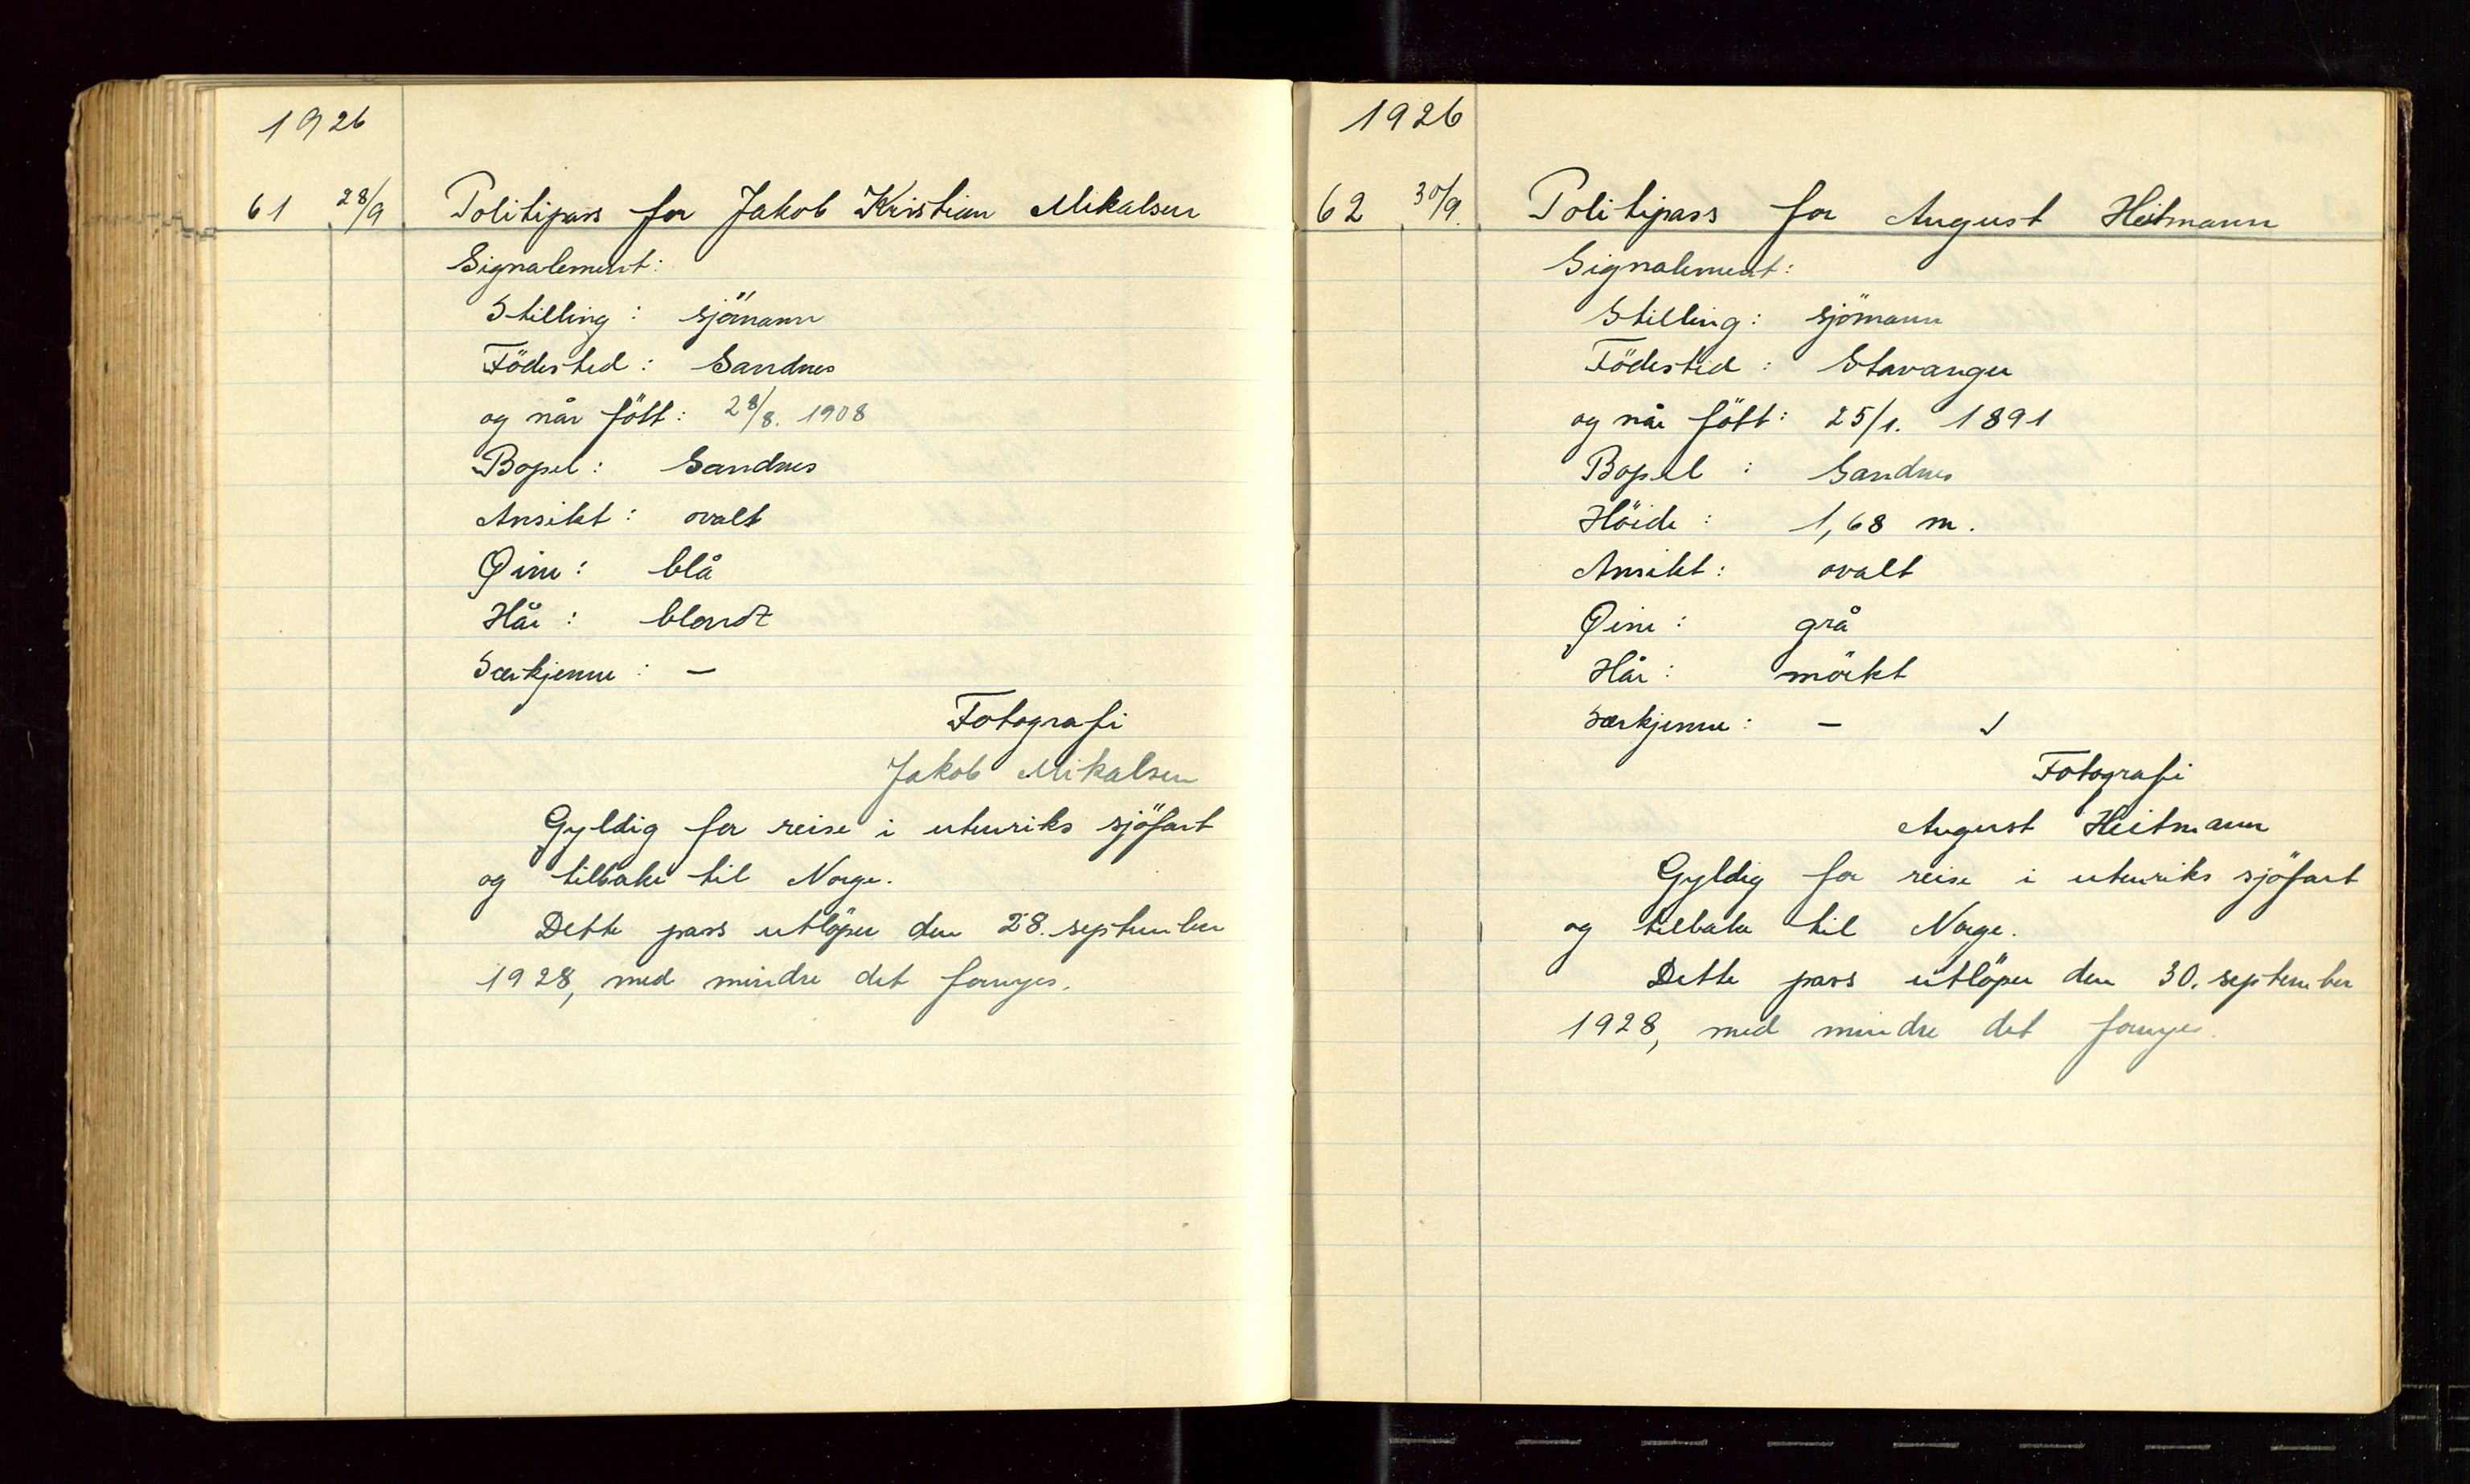 1926
61 28/9 Politipass for Jakob Kristian Mikalsen
Signalement:
Stilling: sjömann
Födested: Sandnes
og når født: 28/8. 1908
Bopel: Sandnes
Ansikt: ovalt
Øine: blå
Hår: blondt
Særkjenne: —
Fotografi
Jakob Mikalsen
Gyldig for reise i utenriks sjöfart
og tilbake til Norge.
Dette pass utlöper den 28. september
1928, med mindre det fornyes.
1926
62 30/9. Politipass for August Heitmann
Signalement:
Stilling: sjömann
Födested: Stavanger
og når fött: 25/1. 1891
Bopel: Sandnes
Höide: 1,68 m.
Ansikt: ovalt
Øine: grå
Hår: mörkt
Særkjenne: —
Fotografi
August Heitmann
Gyldig for reise i utenriks sjöfart
og tilbake til Norge.
Dette pass utlöper den 30. september
1928, med mindre det fornyes.